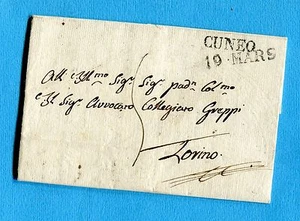 CUNEO
19 MARS
All' Ill.mo Sig.r Sig.r padn Col.mo
Il Sig.r Avvocato Collegiato Greppi
Torino.